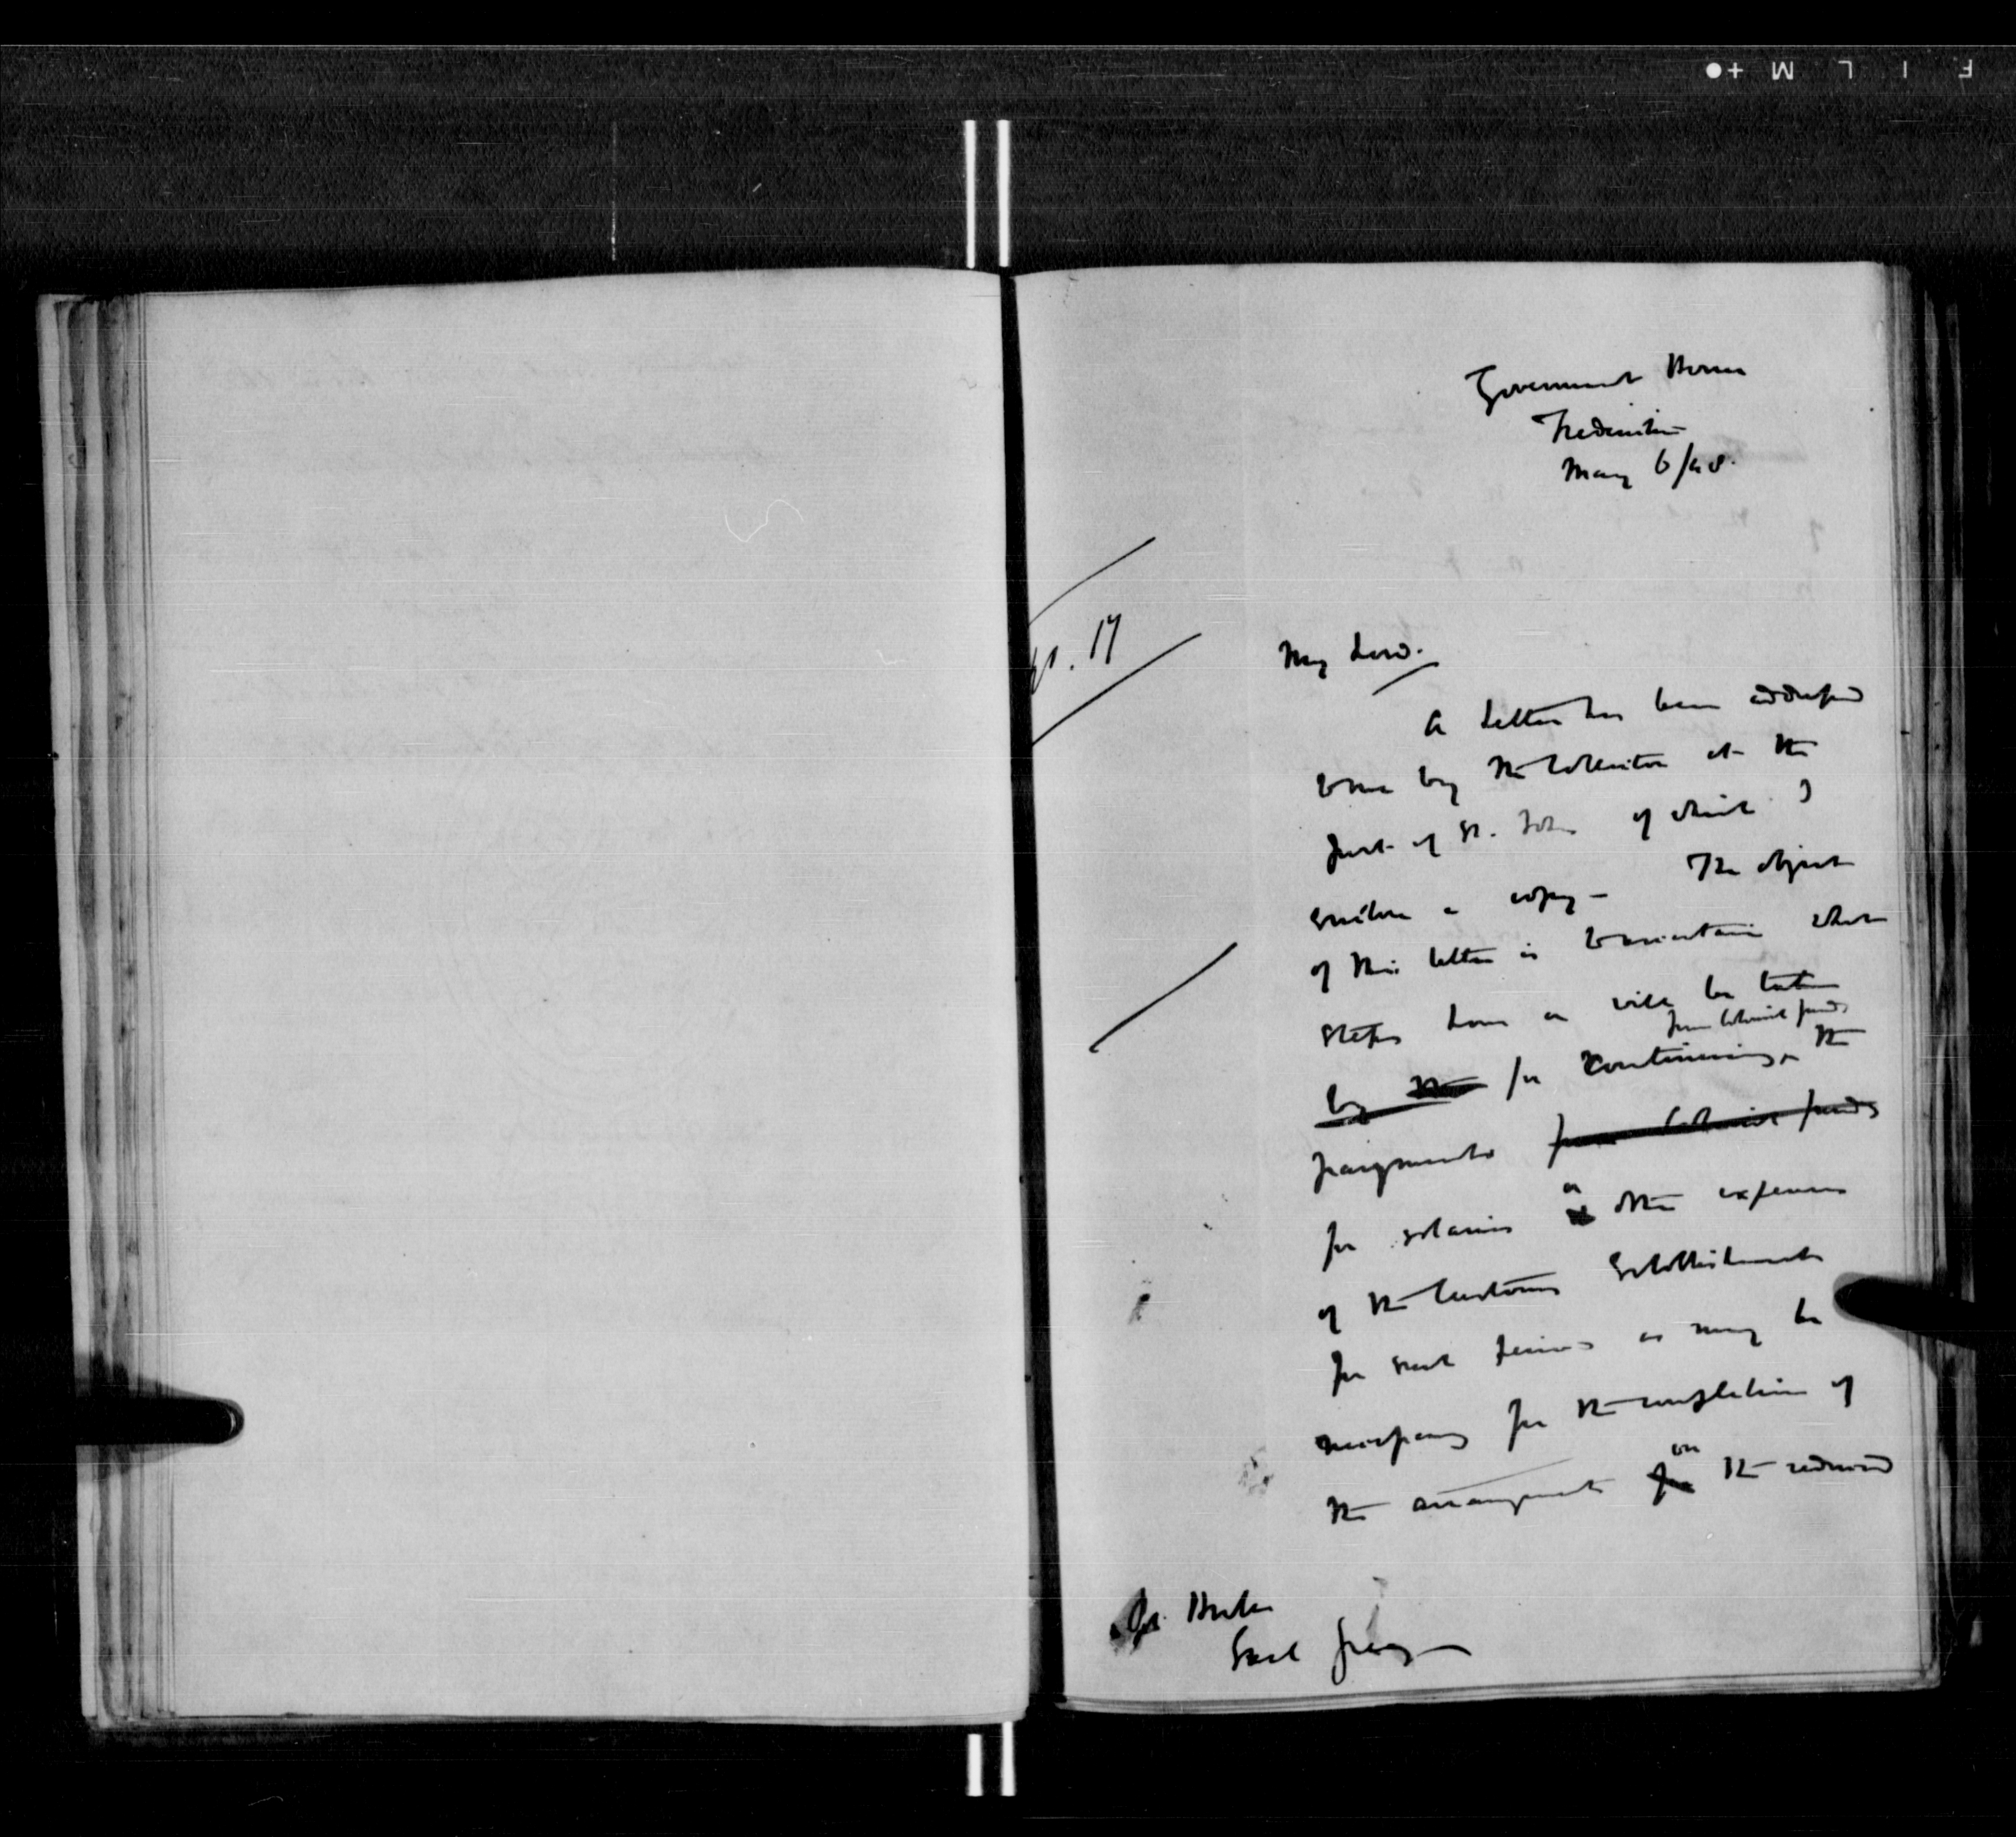 Government House
Fredericton
May 6/48.
17
My Lord.
A letter has been addressed
to me by the Collector at the
Port of St. John of which I
enclose a copy - The object
of this letter is to ascertain what
steps have or will be taken
from Colonial funds
by the for continuing ^ the
payments from Colonial funds
or
for salaries other expenses
of the Customs Establishment
for such period as may be
necessary for the completion of
on
the arrangements for the reduced
Earl Grey